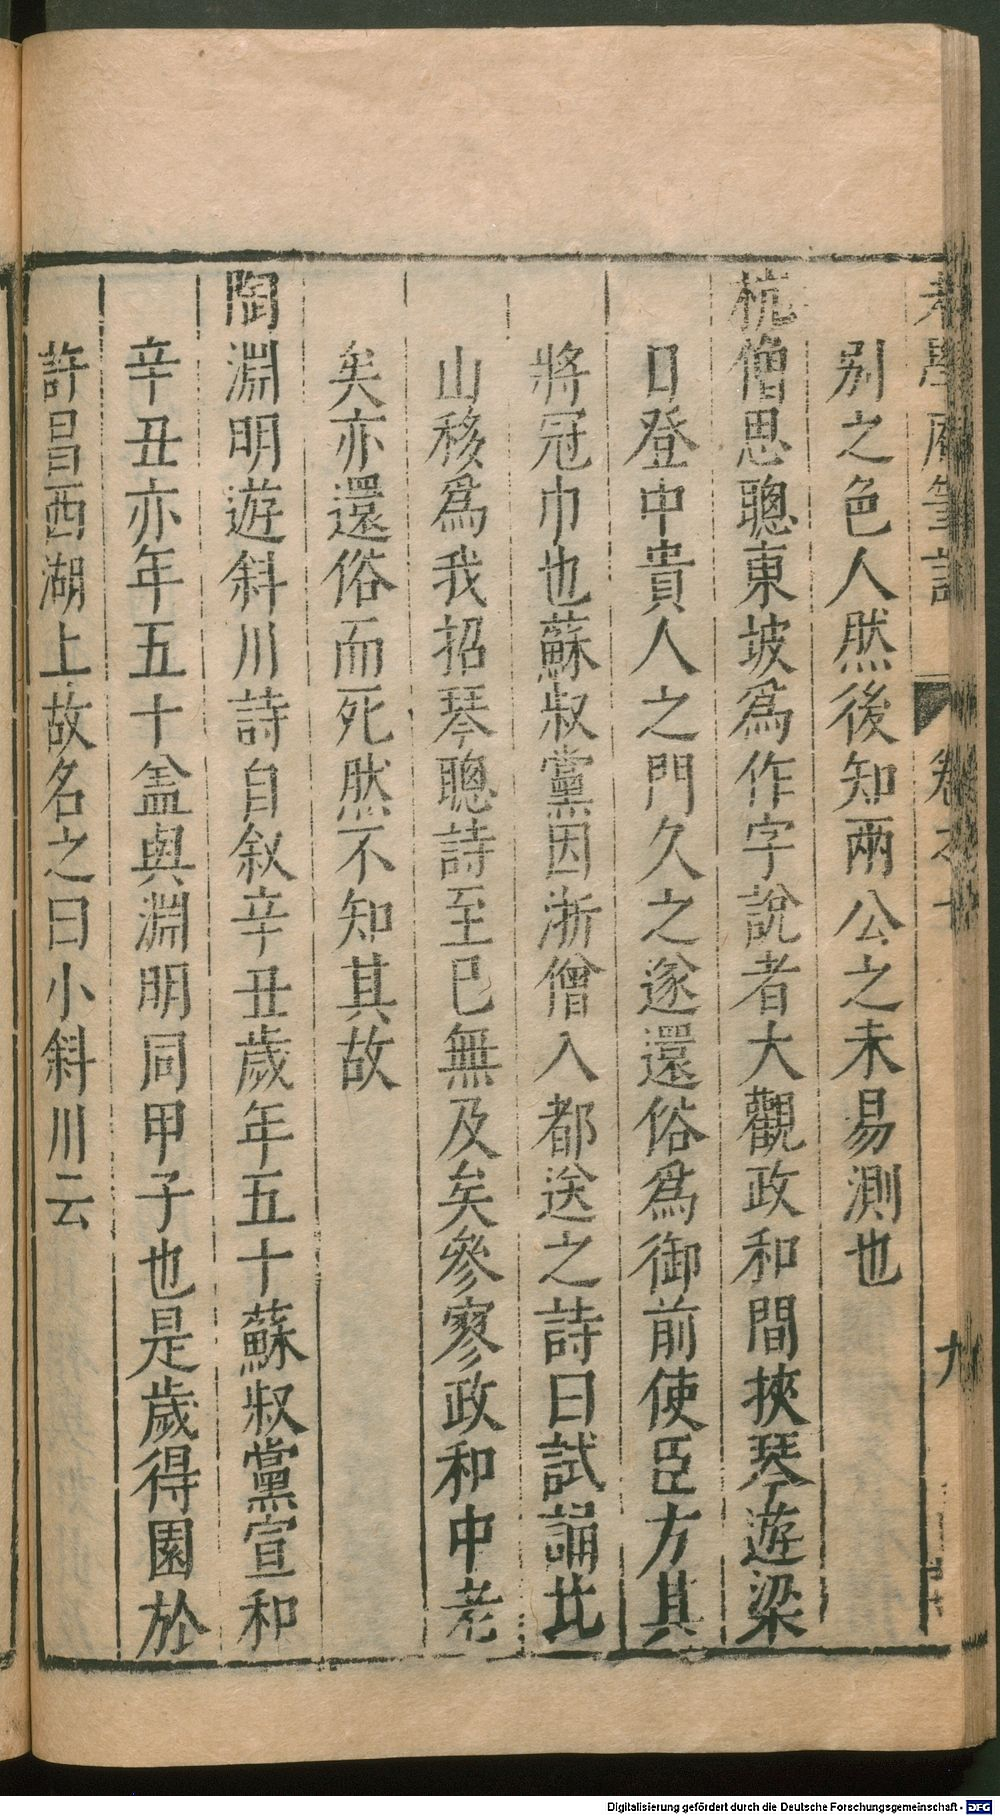 老學庵筆記 卷之十 九
別之色人然後知兩公之未易測也
杭僧思聰東坡爲作字說者大觀政和間挾琴遊梁
日登中貴人之門久之遂還俗爲御前使臣方其
將冠巾也蘇叔黨因浙僧入都送之詩曰試誦北
山移爲我招琴聰詩至已無及矣參寥政和中老
矣亦還俗而死然不知其故
陶淵明遊斜川詩自叙辛丑歲年五十蘇叔黨宣和
辛丑亦年五十盖與淵明同甲子也是歲得園於
許昌西湖上故名之曰小斜川云
Digitalisierung gefördert durch die Deutsche Forschungsgemeinschaft - DFG